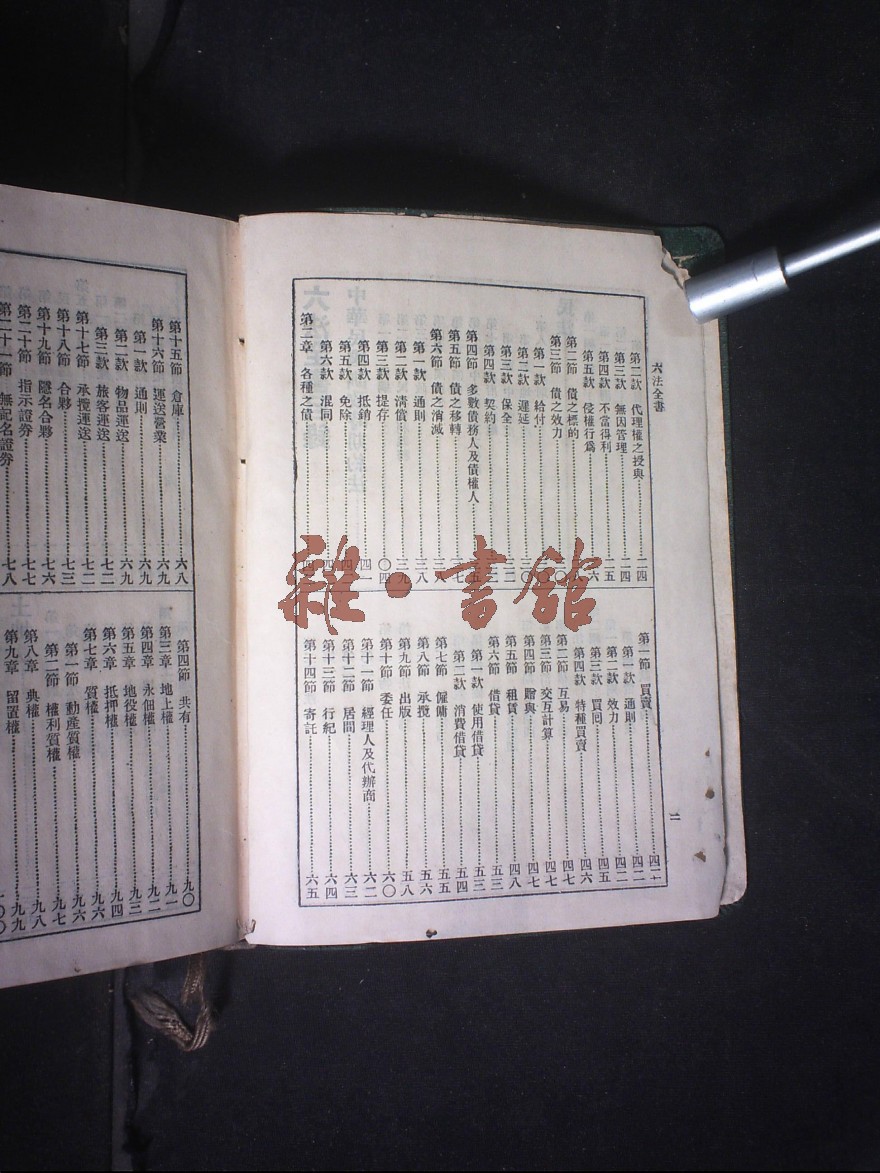 六法全書
第二款 代理權之授與 二四
第三款 無因管理 二四
第四款 不當得利 二五
第五款 侵權行爲
第二節 債之標的
第三節 債之效力
第一款 給付
第二款 遲延
第三款 保全
第四款 契約
第四節 多數債務人及債權人
第五節 債之移轉
第六節 債之消滅
第一款 通則 三八
第二款 清償 三九
第三款 提存 四〇
第四款 抵銷 四一
第五款 免除
第六款 混同
第二章 各種之債
第一節 買賣 四二
第一款 通則 四二
第二款 效力 四二
第三款 買回 四五
第四款 特種買賣 四六
第二節 互易 四七
第三節 交互計算 四七
第四節 贈與 四七
第五節 租賃 四八
第六節 借貸 五三
第一款 使用借貸 五三
第二款 消費借貸 五四
第七節 僱傭 五五
第八節 承攬 五六
第九節 出版 五八
第十節 委任 六〇
第十一節 經理人及代辦商 六二
第十二節 居間 六三
第十三節 行紀 六四
第十四節 寄託 六五
二
第十五節 倉庫 六八
第十六節 運送營業 六九
第一款 通則 六九
第二款 物品運送 六九
第三款 旅客運送 七二
第十七節 承攬運送 七二
第十八節 合夥 七三
第十九節 隱名合夥 七六
第二十節 指示證券 七七
第二十一節 無記名證券 七八
第四節 共有 九〇
第三章 地上權 九一
第四章 永佃權 九二
第五章 地役權 九三
第六章 抵押權 九四
第七章 質權 九六
第一節 動產質權 九六
第二節 權利質權 九七
第八章 典權 九八
第九章 留置權 九九
雜·書館